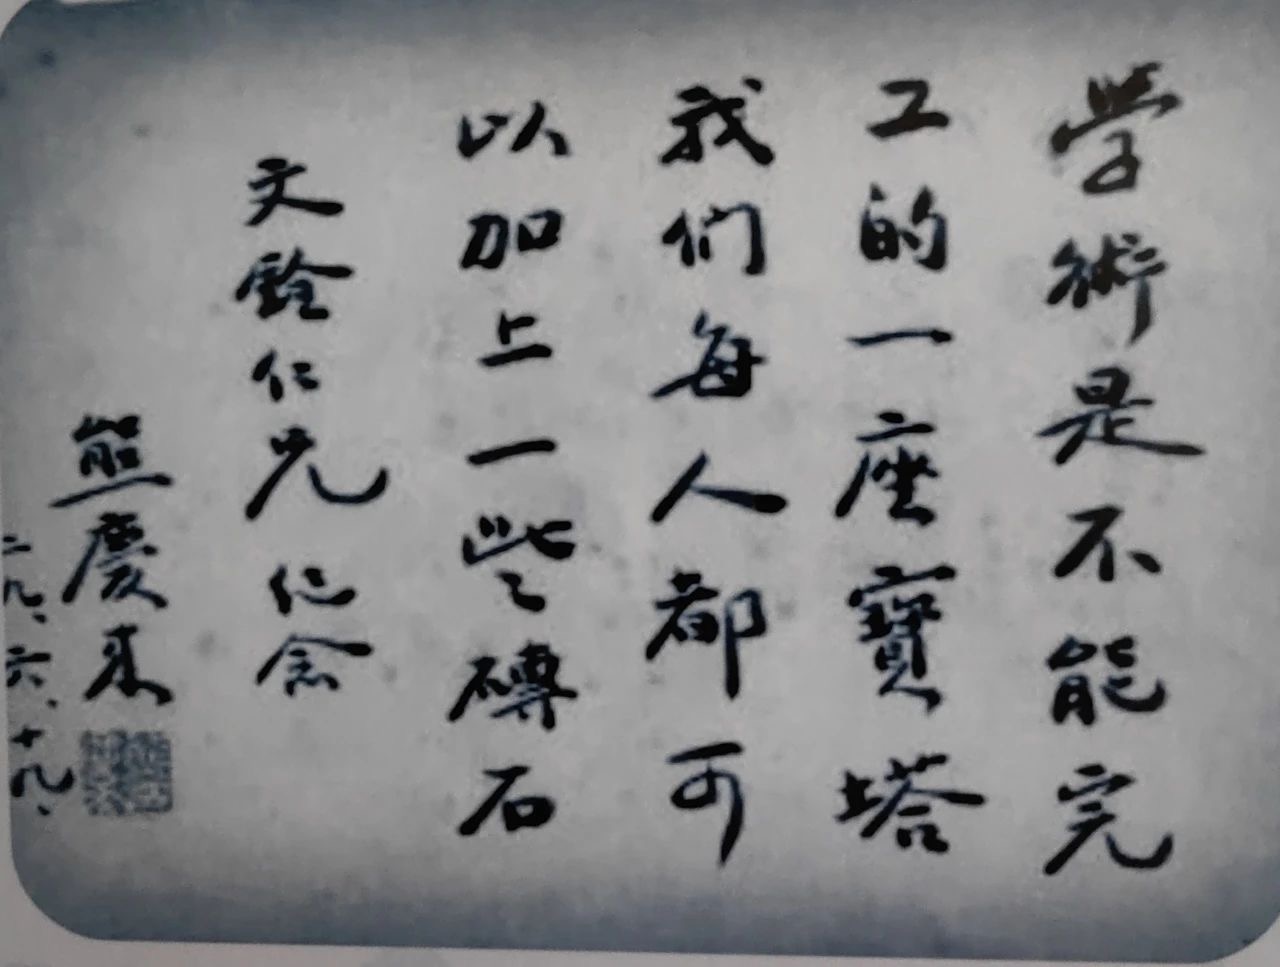 學術是不能完
工的一座寶塔
我们每人都可
以加上一些磚石
文銓仁兄纪念
熊慶来
二九、六、十九、